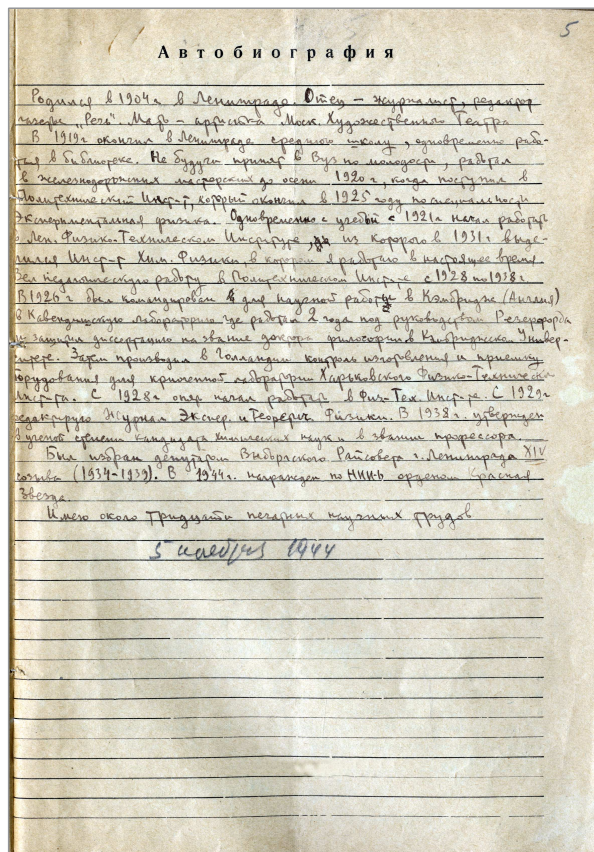 5
Автобиография
Родился в 1904г в Ленинграде. Отец – журналист, редактор
газеты „Речь". Мать – артистка Моск. Художественного Театра
В 1919г окончил в Ленинграде среднюю школу, одновременно рабо-
тая в библиотеке. Не будучи принят в Вуз по молодости, работал
в железнодорожных мастерских до осени 1920г, когда поступил в
Политехнический Инст-т, который окончил в 1925 году по специальности
Экспериментальная физика. Одновременно с учебой с 1921г начал работать
в Лен. Физико-Техническом Институте, из которого в 1931г выде-
лился Инст-т Хим. Физики, в котором я работаю в настоящее время
Вел педагогическую работу в Политехническом Инст-те с 1928 по 1938г
В 1926г был командирован для научной работы в Кэмбридж (Англия)
в Кавендишскую лабораторию где работал 2 года под руководством Резерфорда
и защитил диссертацию на звание доктора философии в Кэмбриджском Универ-
ситете. Затем производил в Голландии контроль изготовления и приемку
оборудования для криогенной лаборатории Харьковского Физико-Техническ
Инст-та. С 1928г опять начал работать в Физ-Тех. Инст-те. С 1929г
редактирую Журнал Экспер. и Теоретич. Физики. В 1938г. утвержден
в ученой степени кандидата химических наук и в звании профессора.
Был избран депутатом Выборгского Райсовета г. Ленинграда XIV
созыва (1934-1939). В 1944г. награжден по НИИ-6 орденом Красная
Звезда.
Имею около тридцати печатных научных трудов
5 ноября 1944